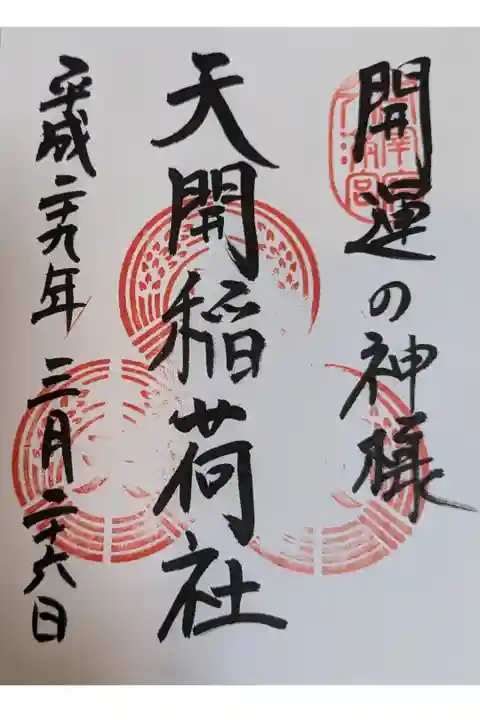 開運の神様
天開稲荷社
平成二十九年 三月二十六日